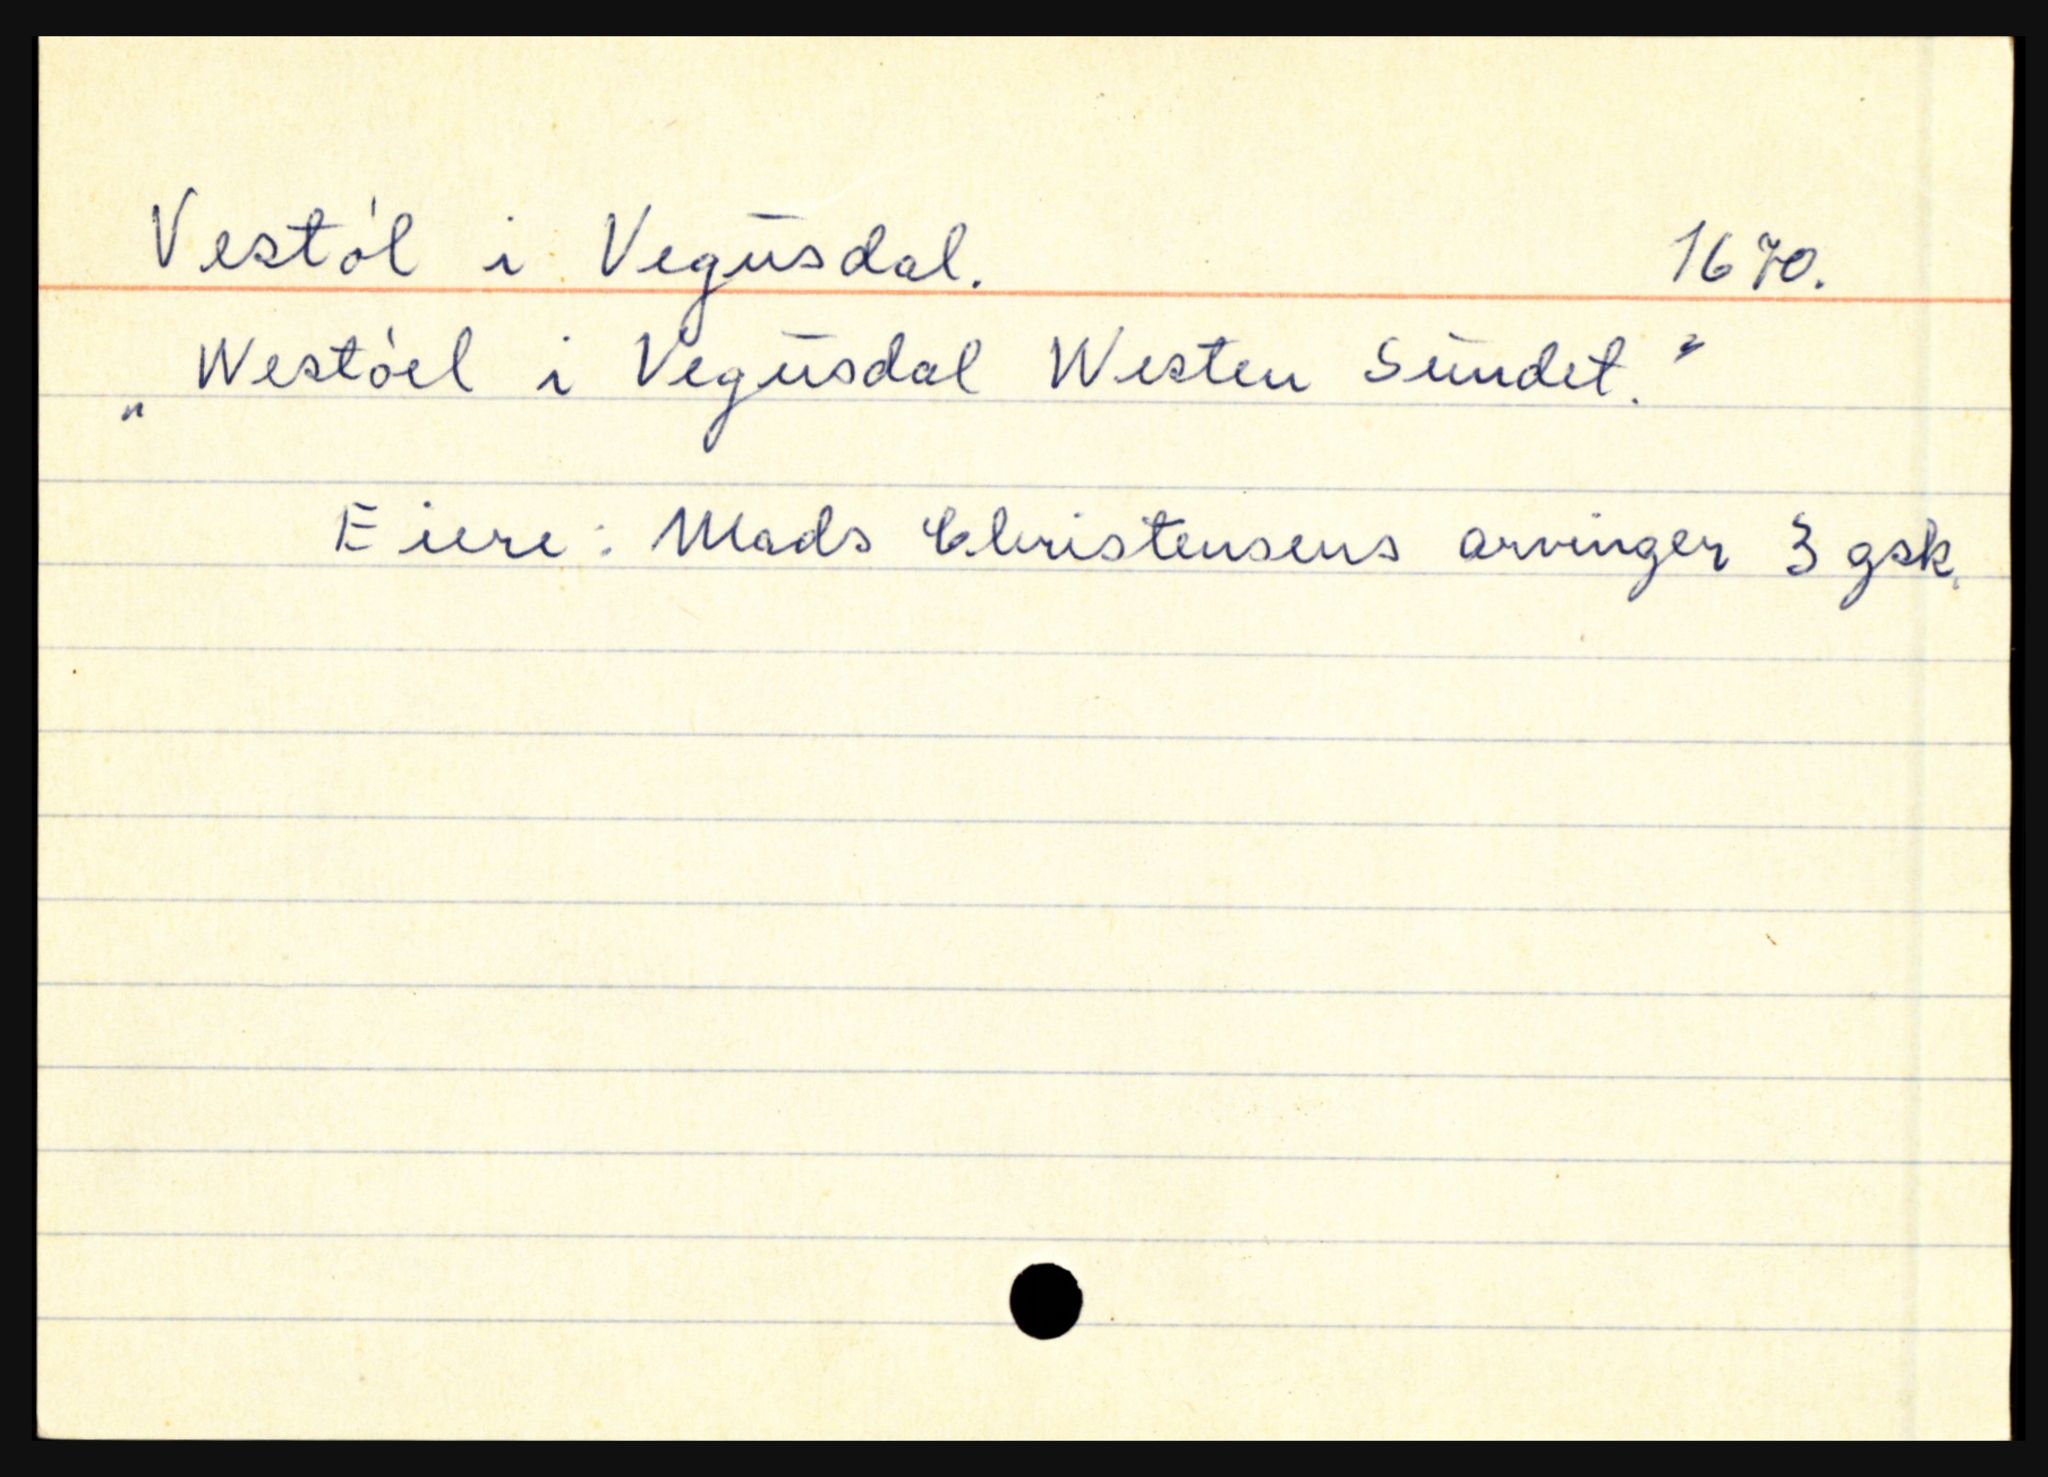 Vestól i Vegūsdal. 1670.
„Westóel i Vegūsdal Westen Sūndet.”
Eiere: Mads Christensens arvinger 3 gsk.